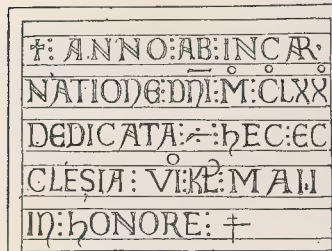 ✝: ANNO:AB:INCAR·
NATIONE:DN̄I:M̊:C̊LXX̊
DEDICATA:∻:hEC:EC
CLESIA: VI̊:KL̄:MAII
IN:hONORE: ‡